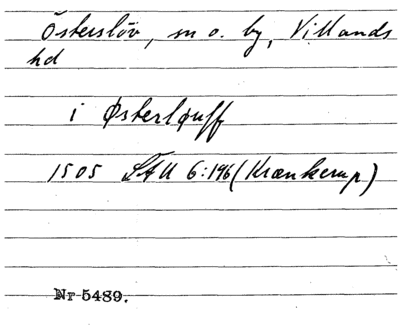 Östersløv, sn o. by, Villands
hd
i Østerløuff
1505 LAU 6:196 (Krænkerup)
Nr 5489.